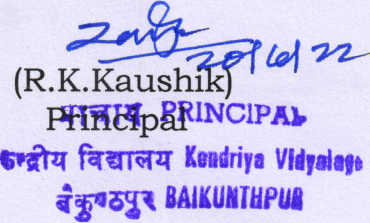 20/6/22
(R.K.Kaushik)
Principal
प्राचार्य PRINCIPAL
केन्द्रीय विद्यालय Kendriya Vidyalaya
बैकुण्ठपुर BAIKUNTHPUR